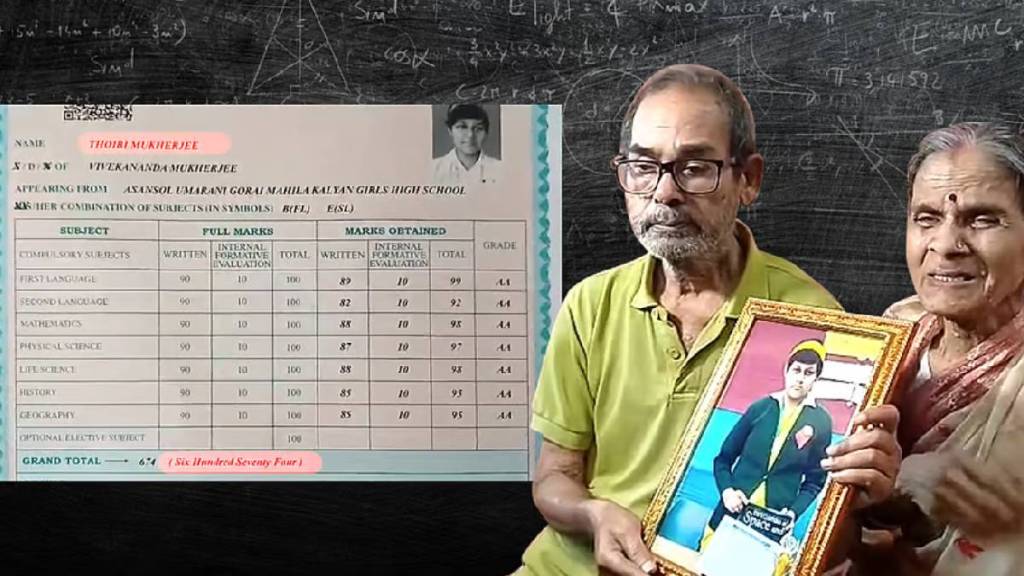 NAME THOIBI MUKHERJEE
S/D/W OF VIVEKANANDA MUKHERJEE
APPEARING FROM ASANSOL UMARANI GORAI MAHILA KALYAN GIRLS HIGH SCHOOL
HIS/HER COMBINATION OF SUBJECTS (IN SYMBOLS) B(FL) E(SL)
SUBJECT FULL MARKS MARKS OBTAINED GRADE
COMPULSORY SUBJECTS WRITTEN INTERNAL FORMATIVE EVALUATION TOTAL WRITTEN INTERNAL FORMATIVE EVALUATION TOTAL
FIRST LANGUAGE 90 10 100 89 10 99 AA
SECOND LANGUAGE 90 10 100 82 10 92 AA
MATHEMATICS 90 10 100 88 10 98 AA
PHYSICAL SCIENCE 90 10 100 87 10 97 AA
LIFE SCIENCE 90 10 100 88 10 98 AA
HISTORY 90 10 100 85 10 95 AA
GEOGRAPHY 90 10 100 85 10 95 AA
OPTIONAL ELECTIVE SUBJECT 100
GRAND TOTAL 674 ( Six Hundred Seventy Four )
Space and
π = 3,141592